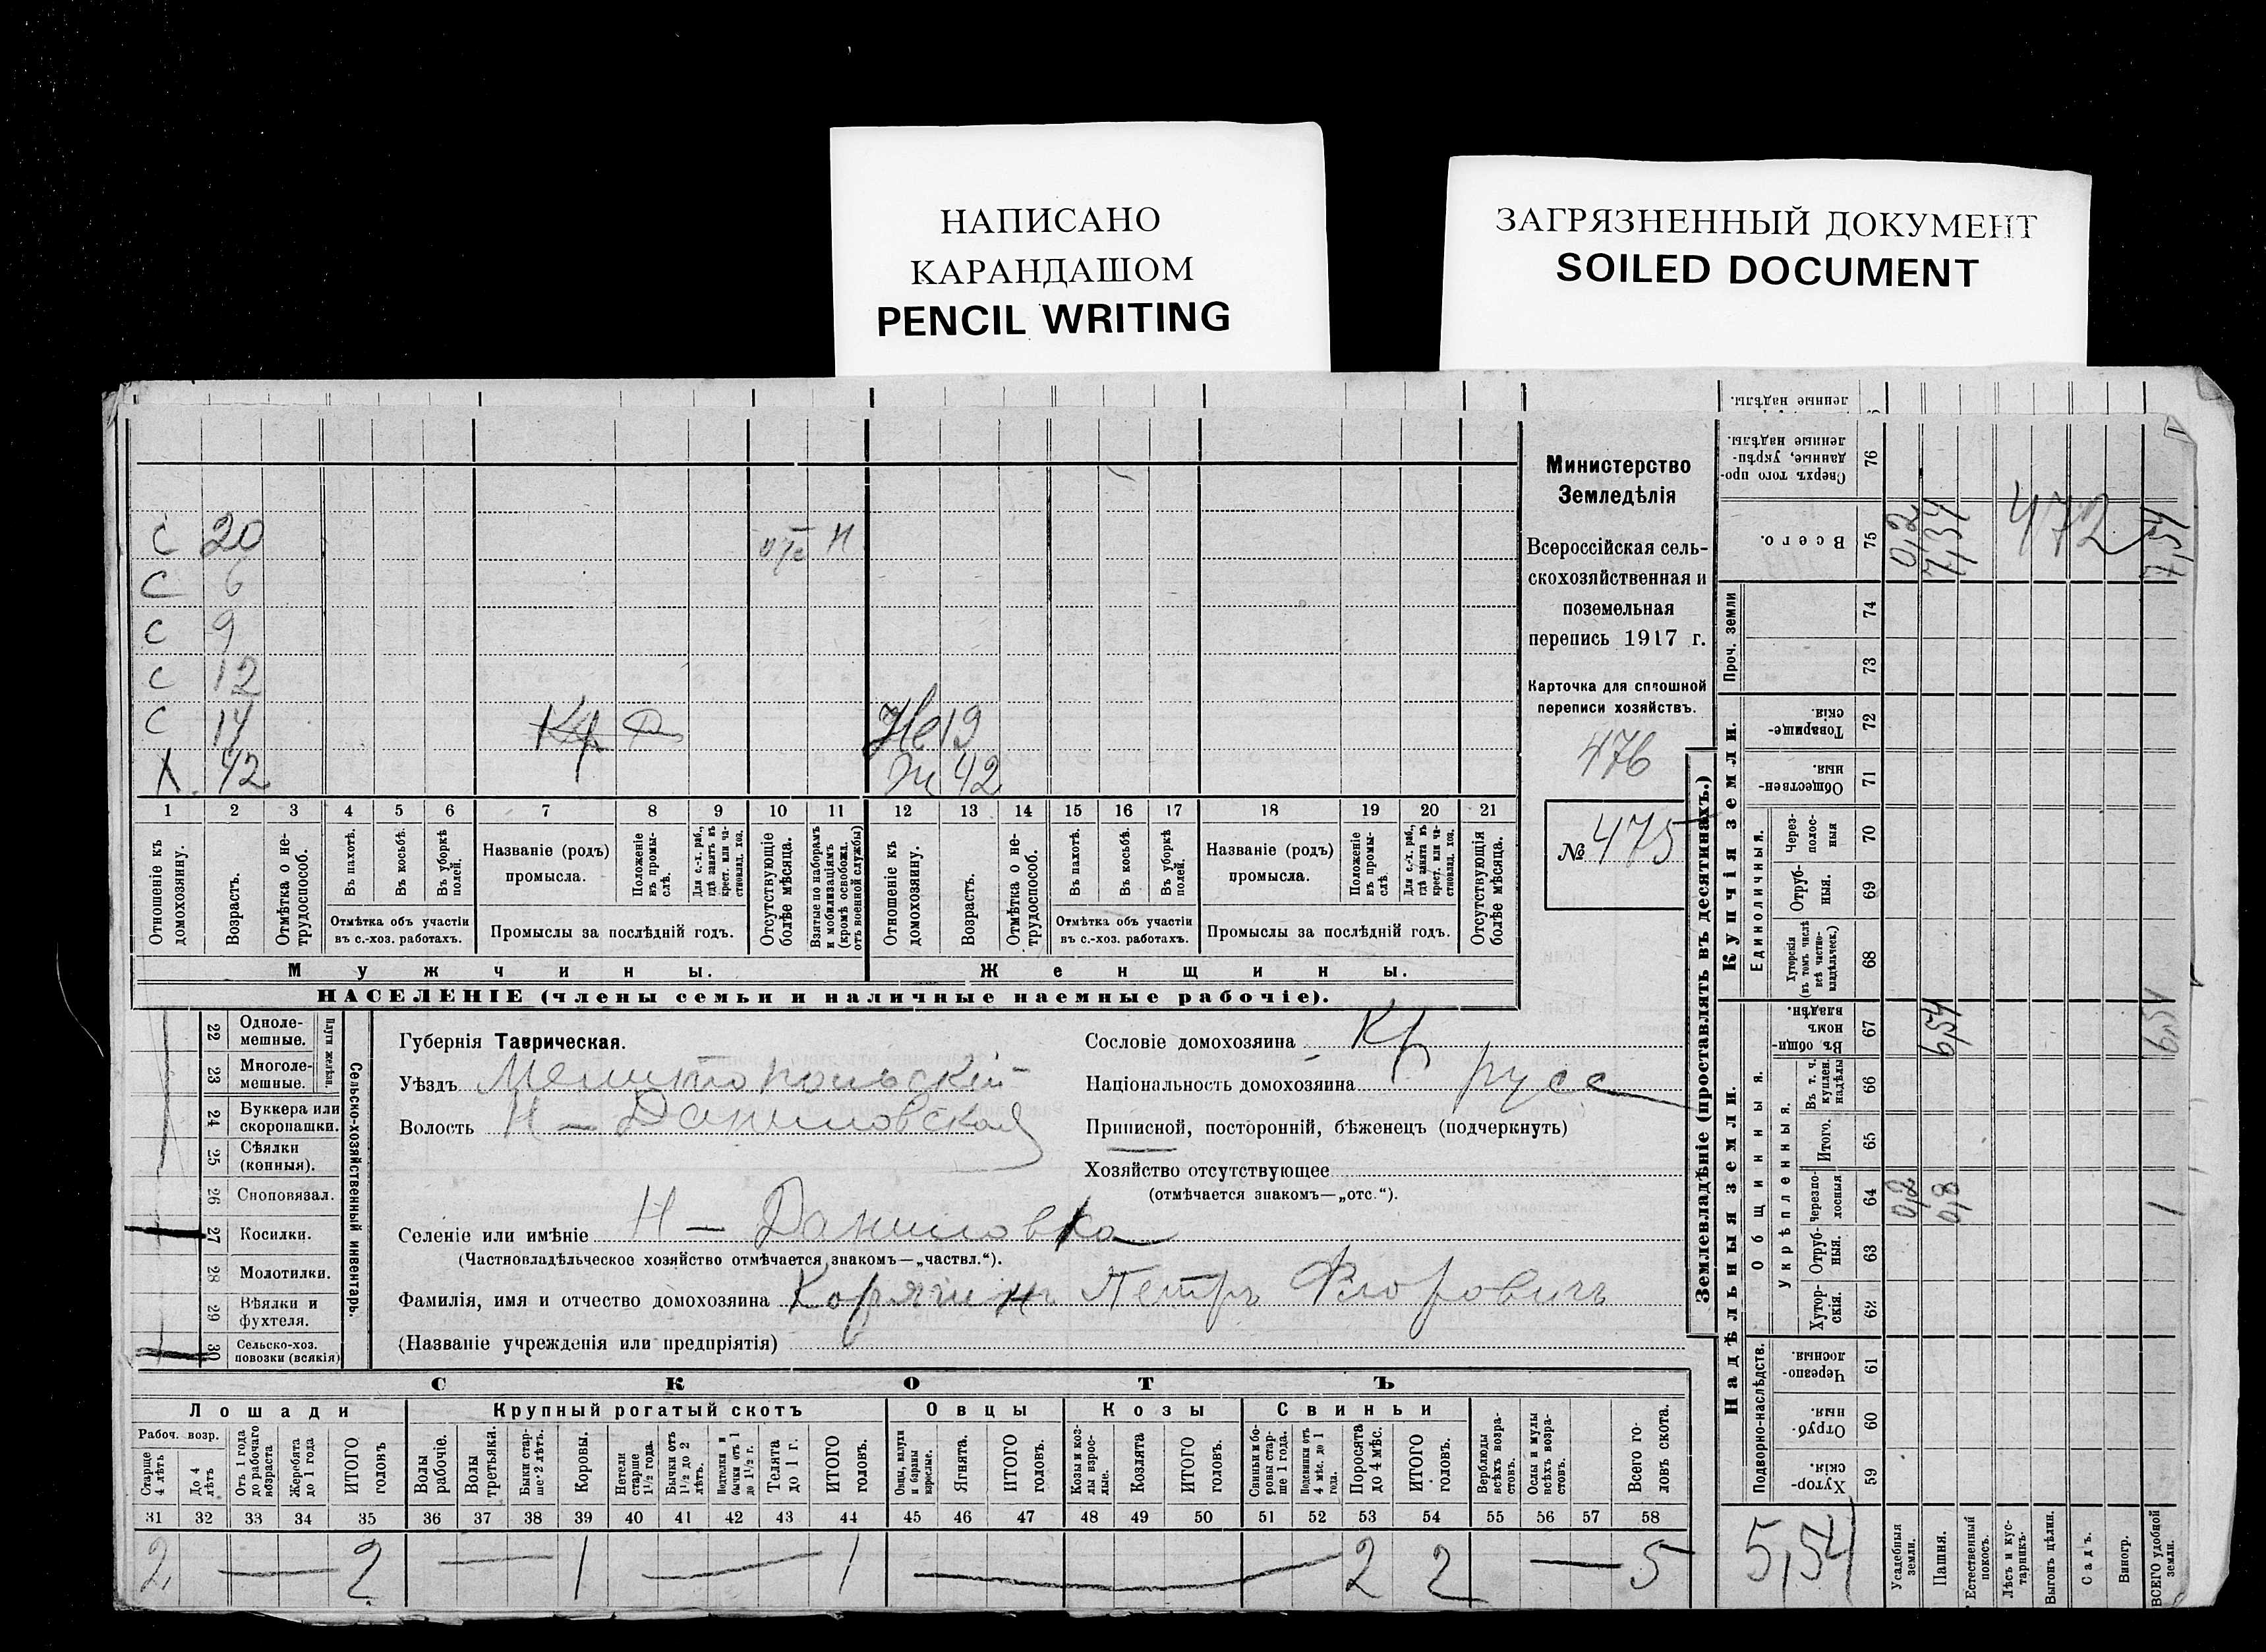 НАПИСАНО
КАРАНДАШОМ
PENCIL WRITING
ЗАГРЯЗНЕННЫЙ ДОКУМЕНТ
SOILED DOCUMENT
Министерство
Земледѣлія
Всероссійская сель-
скохозяйственная и
поземельная
перепись 1917 г.
Карточка для сплошной
переписи хозяйствъ.
476
№ 475
С 20 Н
С 6
С 9
С 12
С 14 Кр 19
Х 42 Ж 42
1 2 3 4 5 6 7 8 9 10 11 12 13 14 15 16 17 18 19 20 21
Отношеніе къ домохозяину.
Возрастъ.
Отмѣтка о не-трудоспособ.
Въ пахотѣ.
Въ косьбѣ.
Въ уборкѣ полей.
Отмѣтка объ участіи
въ с.-хоз. работахъ.
Названіе (родъ)
промысла.
Положеніе въ промы-слѣ.
Для с.-х. раб., гдѣ занятъ въ крест. или ча-ствовлад. хоз.
Промыслы за послѣдній годъ.
Отсутствующіе болѣе мѣсяца.
Взятые по наборамъ и мобилизаціямъ (кромѣ освобожд. отъ военной службы)
Отношеніе къ домохозяину.
Возрастъ.
Отмѣтка о не-трудоспособ.
Въ пахотѣ.
Въ косьбѣ.
Въ уборкѣ полей.
Отмѣтка объ участіи
въ с.-хоз. работахъ.
Названіе (родъ)
промысла.
Положеніе въ промы-слѣ.
Для с.-х. раб., гдѣ занята въ крест. или ча-ствовлад. хоз.
Промыслы за послѣдній годъ.
Отсутствующія болѣе мѣсяца.
Мужчины. Женщины.
НАСЕЛЕНІЕ (члены семьи и наличные наемные рабочіе).
22 Одноле-мешные.
23 Многоле-мешные.
Плуги желѣзн.
24 Буккера или скоропашки.
25 Сѣялки (конныя).
26 Сноповязал.
27 Косилки.
28 Молотилки.
29 Вѣялки и фухтеля.
30 Сельско-хоз. повозки (всякія)
Сельско-хозяйственный инвентарь.
Губернія Таврическая.
Уѣздъ Мелитопольскій
Волость Н-Даниловская
Селеніе или имѣніе Н-Даниловка
(Частновладѣльческое хозяйство отмѣчается знакомъ—„частвл.“).
Фамилія, имя и отчество домохозяина Корягинъ Петръ Флоровичъ
(Названіе учрежденія или предпріятія)
Сословіе домохозяина Кр
Національность домохозяина русс
Приписной, посторонній, бѣженецъ (подчеркнуть)
Хозяйство отсутствующее
(отмѣчается знакомъ—„отс.“).
СКОТЪ
Лошади Крупный рогатый скотъ Овцы Козы Свиньи
Рабоч. возр.
Старше 4 лѣтъ
До 4 лѣтъ
Отъ 1 года до рабочаго возраста
Жеребята до 1 года
ИТОГО головъ
Волы рабочіе.
Волы третьяки.
Быки стар-ше 2 лѣтъ.
Коровы.
Нетели старше 1½ года.
Бычки отъ 1½ до 2 лѣтъ.
Подтелки и бычки отъ 1 до 1½ г.
Телята до 1 г.
ИТОГО головъ.
Овцы, валухи и бараны взрослые.
Ягнята.
ИТОГО головъ.
Козы и коз-лы взрос-лые.
Козлята
ИТОГО головъ.
Свиньи и бо-ровы стар-ше 1 года.
Подсвинки отъ 4 мѣс. до 1 года.
Поросята до 4 мѣс.
ИТОГО головъ.
Верблюды всѣхъ возра-стовъ.
Ослы и мулы всѣхъ возра-стовъ.
Всего го-ловъ скота.
31 32 33 34 35 36 37 38 39 40 41 42 43 44 45 46 47 48 49 50 51 52 53 54 55 56 57 58
2 — 2 — 1 — 1 — 2 2 — 5
Землевладѣніе (проставлять въ десятинахъ.)
ленные надѣлы.
76 Сверхъ того про-данные, укрѣп-ленные надѣлы.
75 Всего. 0,2 7,34 472 7,54
Проч. земли
74
73
Купчія земли.
72 Товарище-скія.
71 Обществен-ныя.
Единоличныя.
70 Через-полос-ныя
69 Отруб-ныя.
68 Хуторскія (въ томъ числѣ всѣ частно-владѣльческ.)
Надѣльныя земли.
Общинныя.
67 Въ общин-номъ владѣн. 6,54 6,54
Укрѣпленныя.
66 Въ т. ч. куплен. надѣлы
65 Итого.
64 Черезпо-лосныя 0,2 0,8 1
63 Отруб-ныя.
62 Хутор-скія.
Подворно-наслѣдств.
61 Черезпо-лосныя.
60 Отруб-ныя.
59 Хутор-скія.
5,54
Усадебная земли.
Пашня.
Естественный покосъ.
Лѣсъ и кус-тарникъ.
Выгонъ цѣлин.
Садъ.
Виногр.
ВСЕГО удобной земли.